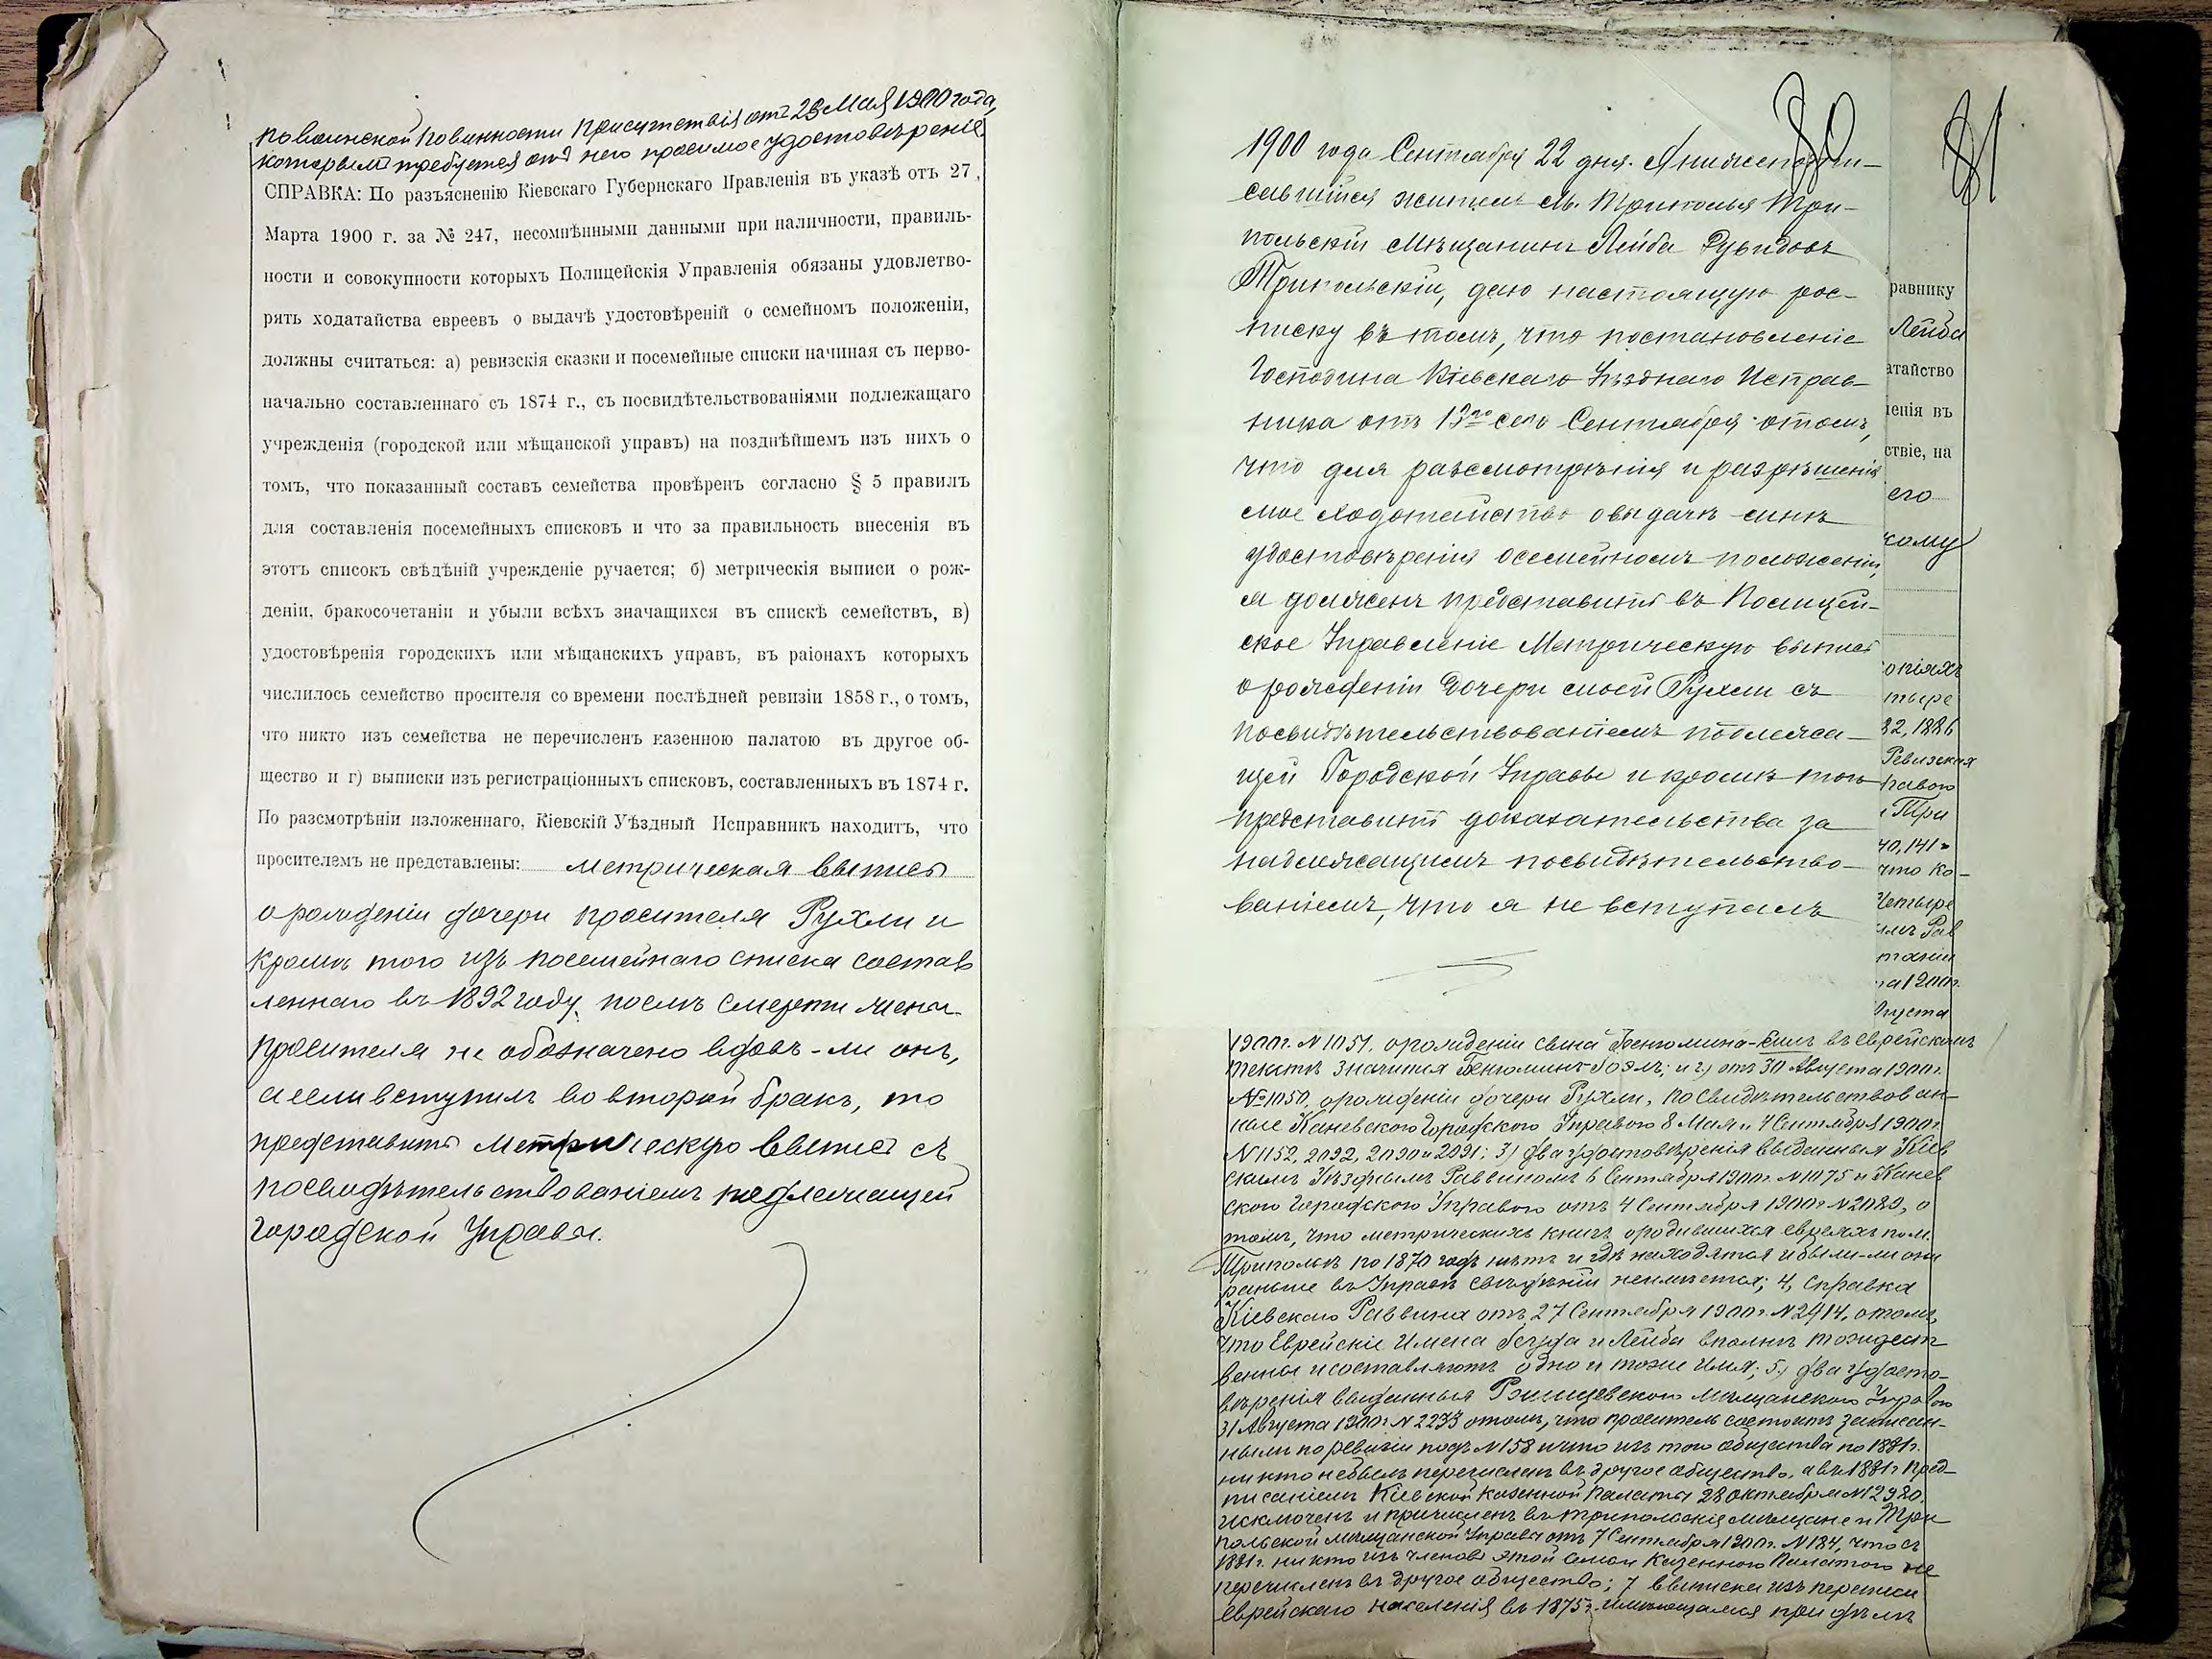 по воинской повинности присутствія отъ 23 Мая 1900 года,
которымъ требуется отъ него просимое удостовѣреніе.
СПРАВКА: По разъясненію Кіевскаго Губернскаго Правленія въ указѣ отъ 27
Марта 1900 г. за № 247, несомнѣнными данными при наличности, правиль-
ности и совокупности которыхъ Полицейскія Управленія обязаны удовлетво-
рять ходатайства евреевъ о выдачѣ удостовѣреній о семейномъ положеніи,
должны считаться: а) ревизскія сказки и посемейные списки начиная съ перво-
начально составленнаго съ 1874 г., съ посвидѣтельствованіями подлежащаго
учрежденія (городской или мѣщанской управъ) на позднѣйшемъ изъ нихъ о
томъ, что показанный составъ семейства провѣренъ согласно § 5 правилъ
для составленія посемейныхъ списковъ и что за правильность внесенія въ
этотъ список свѣдѣній учрежденіе ручается; б) метрическія выписи о рож-
деніи, бракосочетаніи и убыли всѣхъ значащихся въ спискѣ семействъ, в)
удостовѣренія городскихъ или мѣщанскихъ управъ, въ раіонахъ которыхъ
числилось семейство просителя со времени послѣдней ревизіи 1858 г., о томъ,
что никто изъ семейства не перечисленъ казенною палатою въ другое об-
щество и г) выписки изъ регистраціонныхъ списковъ, составленныхъ въ 1874 г.
По разсмотрѣніи изложеннаго, Кіевскій Уѣздный Исправникъ находитъ, что
просителемъ не представлены: метрическая выпись
о рожденіи дочери просителя Рухли и
кромѣ того изъ посемейнаго списка состав
леннаго въ 1892 году, послѣ смерти жены
просителя не обозначено вдовъ-ли онъ,
а если вступилъ во второй бракъ, то
представить метрическую выпись съ
посвидѣтельствованіемъ подлежащей
городской Управы.
80
81
1900 года Сентября 22 дня. Я нижеподпи-
савшійся житель м. Триполья Три-
польскій мѣщанинъ Лейба Рувидовъ
Трипольскій, даю настоящую рос-
писку въ томъ, что постановленіе
Господина Кіевскаго Уѣзднаго Исправ-
ника отъ 13го сего Сентября о томъ,
что для разсмотрѣнія и разрѣшенія
мое ходотайство о выдачѣ мнѣ
удостовѣренія о семейномъ положеніи,
я долженъ представить въ Полицей-
ское Управленіе Метрическую выпись
о рожденіи дочери моей Рухли съ
посвидѣтельствованіемъ подлежа-
щей Городской Управы и кромѣ того
представить доказательства за
надлежащимъ посвидѣтельство-
ваніемъ, что я не вступалъ
равнику
Лейба
атайство
ленія въ
ствіе, на
его
кому
опіяхъ
тыре
82, 1886
Ревизская
правою
Три
40, 141
что ко-
Четыре
Рав
та 1900г.
Августа
1900г. N 1051. о рожденіи сына Веніомина-Симъ въ еврейскомъ
текстѣ значится Беніоминъ Іоэлъ; и г) отъ 30 Августа 1900г.
№ 1050. о рожденіи дочери Рухли, по свидѣтельствован-
ные Каневскою Городскою Управою 8 Мая и 4 Сентября 1900г.
N 1152, 2092, 2090 и 2091; 3) два удостовѣренія выданныя Кіев
скимъ Уѣзднымъ Раввиномъ 6 Сентября 1900г. N 1075 и Канев
скою Городскою Управою отъ 4 Сентября 1900г N 2089, о
томъ, что метрическихъ книгъ о родившихся евреяхъ по м.
Триполью по 1870 годъ нѣтъ и гдѣ находятся и были-ли они
раньше въ Управѣ свѣдѣній неимѣется; 4, справка
Кіевскаго Раввина отъ 27 Сентября 1900г. N 2914, о томъ,
что Еврейскіе Имена Іегуда и Лейба вполнѣ тождест
венны и составляютъ одно и тоже имя; 5) два удосто-
вѣренія выданныя Ржищевскою Мѣщанскою Управою
31 Августа 1900г N 2233 о томъ, что проситель состоитъ записан-
нымъ по ревизіи подъ N 158 и что изъ того общества по 1881г.
никто небылъ перечисленъ въ другое общество, а въ 1881г пред-
писаніемъ Кіевской Казенной Палаты 28 Октября N 12980
исключенъ и причисленъ въ Трипольскіе мѣщане и Три
польской мѣщанской Управы отъ 7 Сентября 1900г. N 184, что съ
1881г. никто изъ членовъ этой семьи Казенною Палатою не
перечисленъ въ другое общество; 7 выписки изъ переписи
еврейскаго населенія въ 1875г. имѣющаяся при дѣлѣ